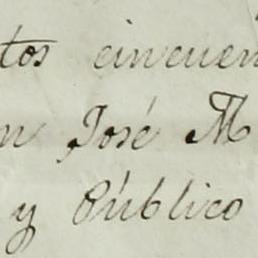 tos cincuen
n José M
y Público